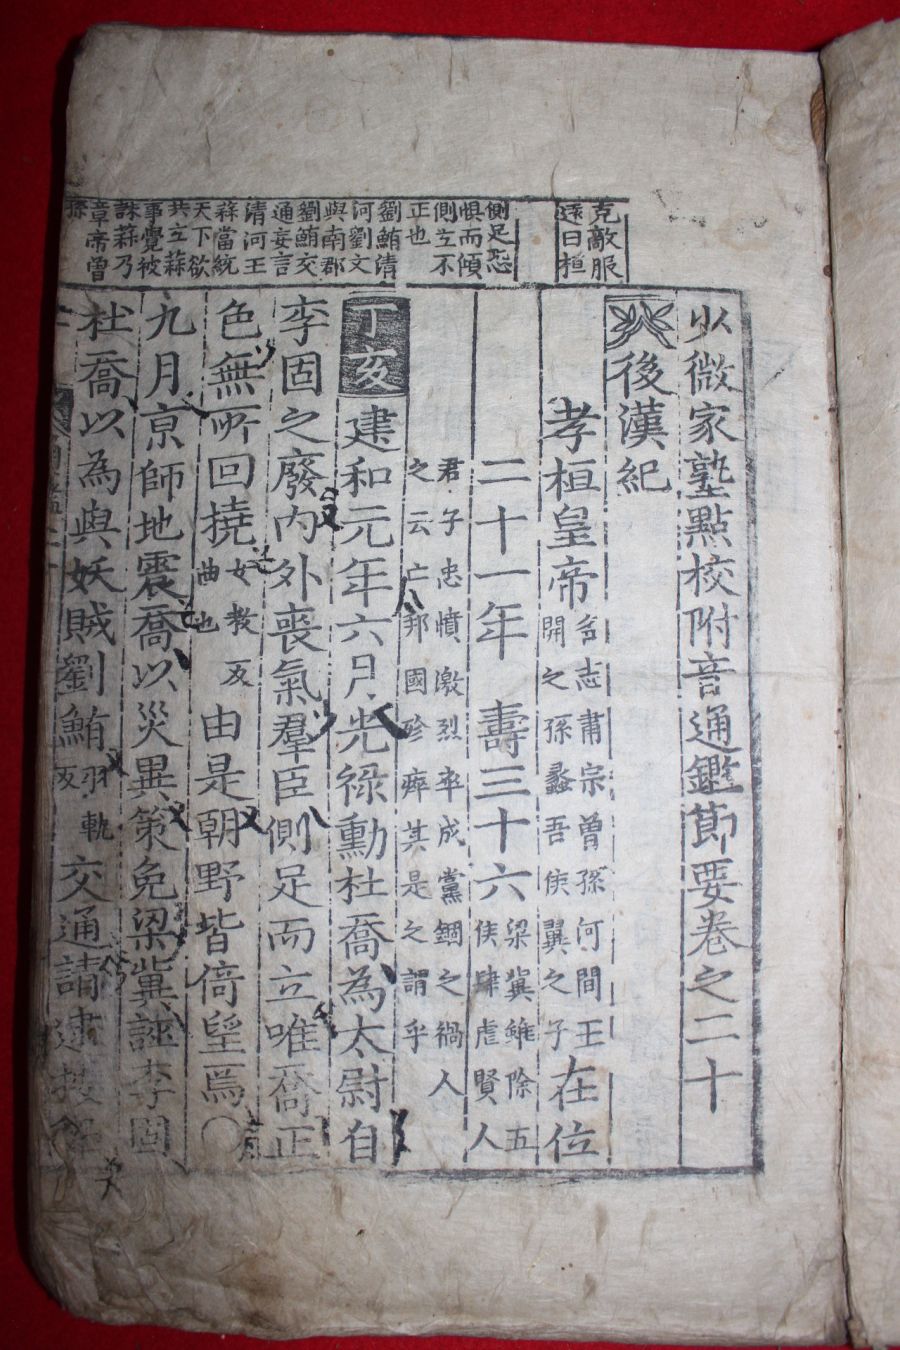 少微家塾點校附音通鑑節要卷之二十
後漢紀
孝桓皇帝名志肅宗曾孫河間王開之孫蠡吾侯翼之子在位
二十一年 壽三十六梁冀雖除五侯肆虐賢人
君子忠憤激烈卒成黨錮之禍人
之云亡邦國殄瘁其是之謂乎
丁亥建和元年六月光祿勳杜喬為太尉自
李固之廢內外喪氣羣臣側足而立唯喬正
色無所回撓女教反曲也由是朝野皆倚望焉〇
九月京師地震喬以災異策免梁冀誣李固
杜喬以為與妖賊劉鮪羽軌反交通請逮按
克敵服
遠曰桓
側足恐
惧而傾
側立不
正也
劉鮪清
河劉文
與南郡
劉鮪交
通妄言
清河王
蒜當統
天下欲
共立蒜
事覺被
誅蒜乃
章帝曾
孫